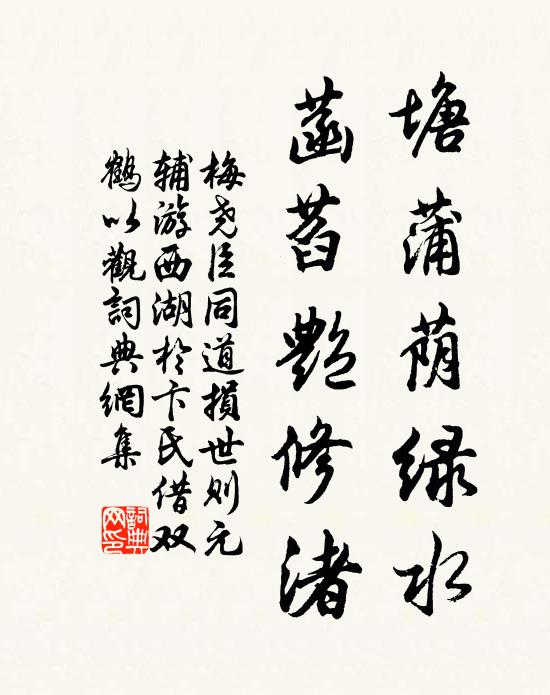 塘蒲荫绿水
菡萏艳修渚
梅尧臣同道损世则元
辅游西湖於卞氏借双
鹤以观词典網集
詞典网印